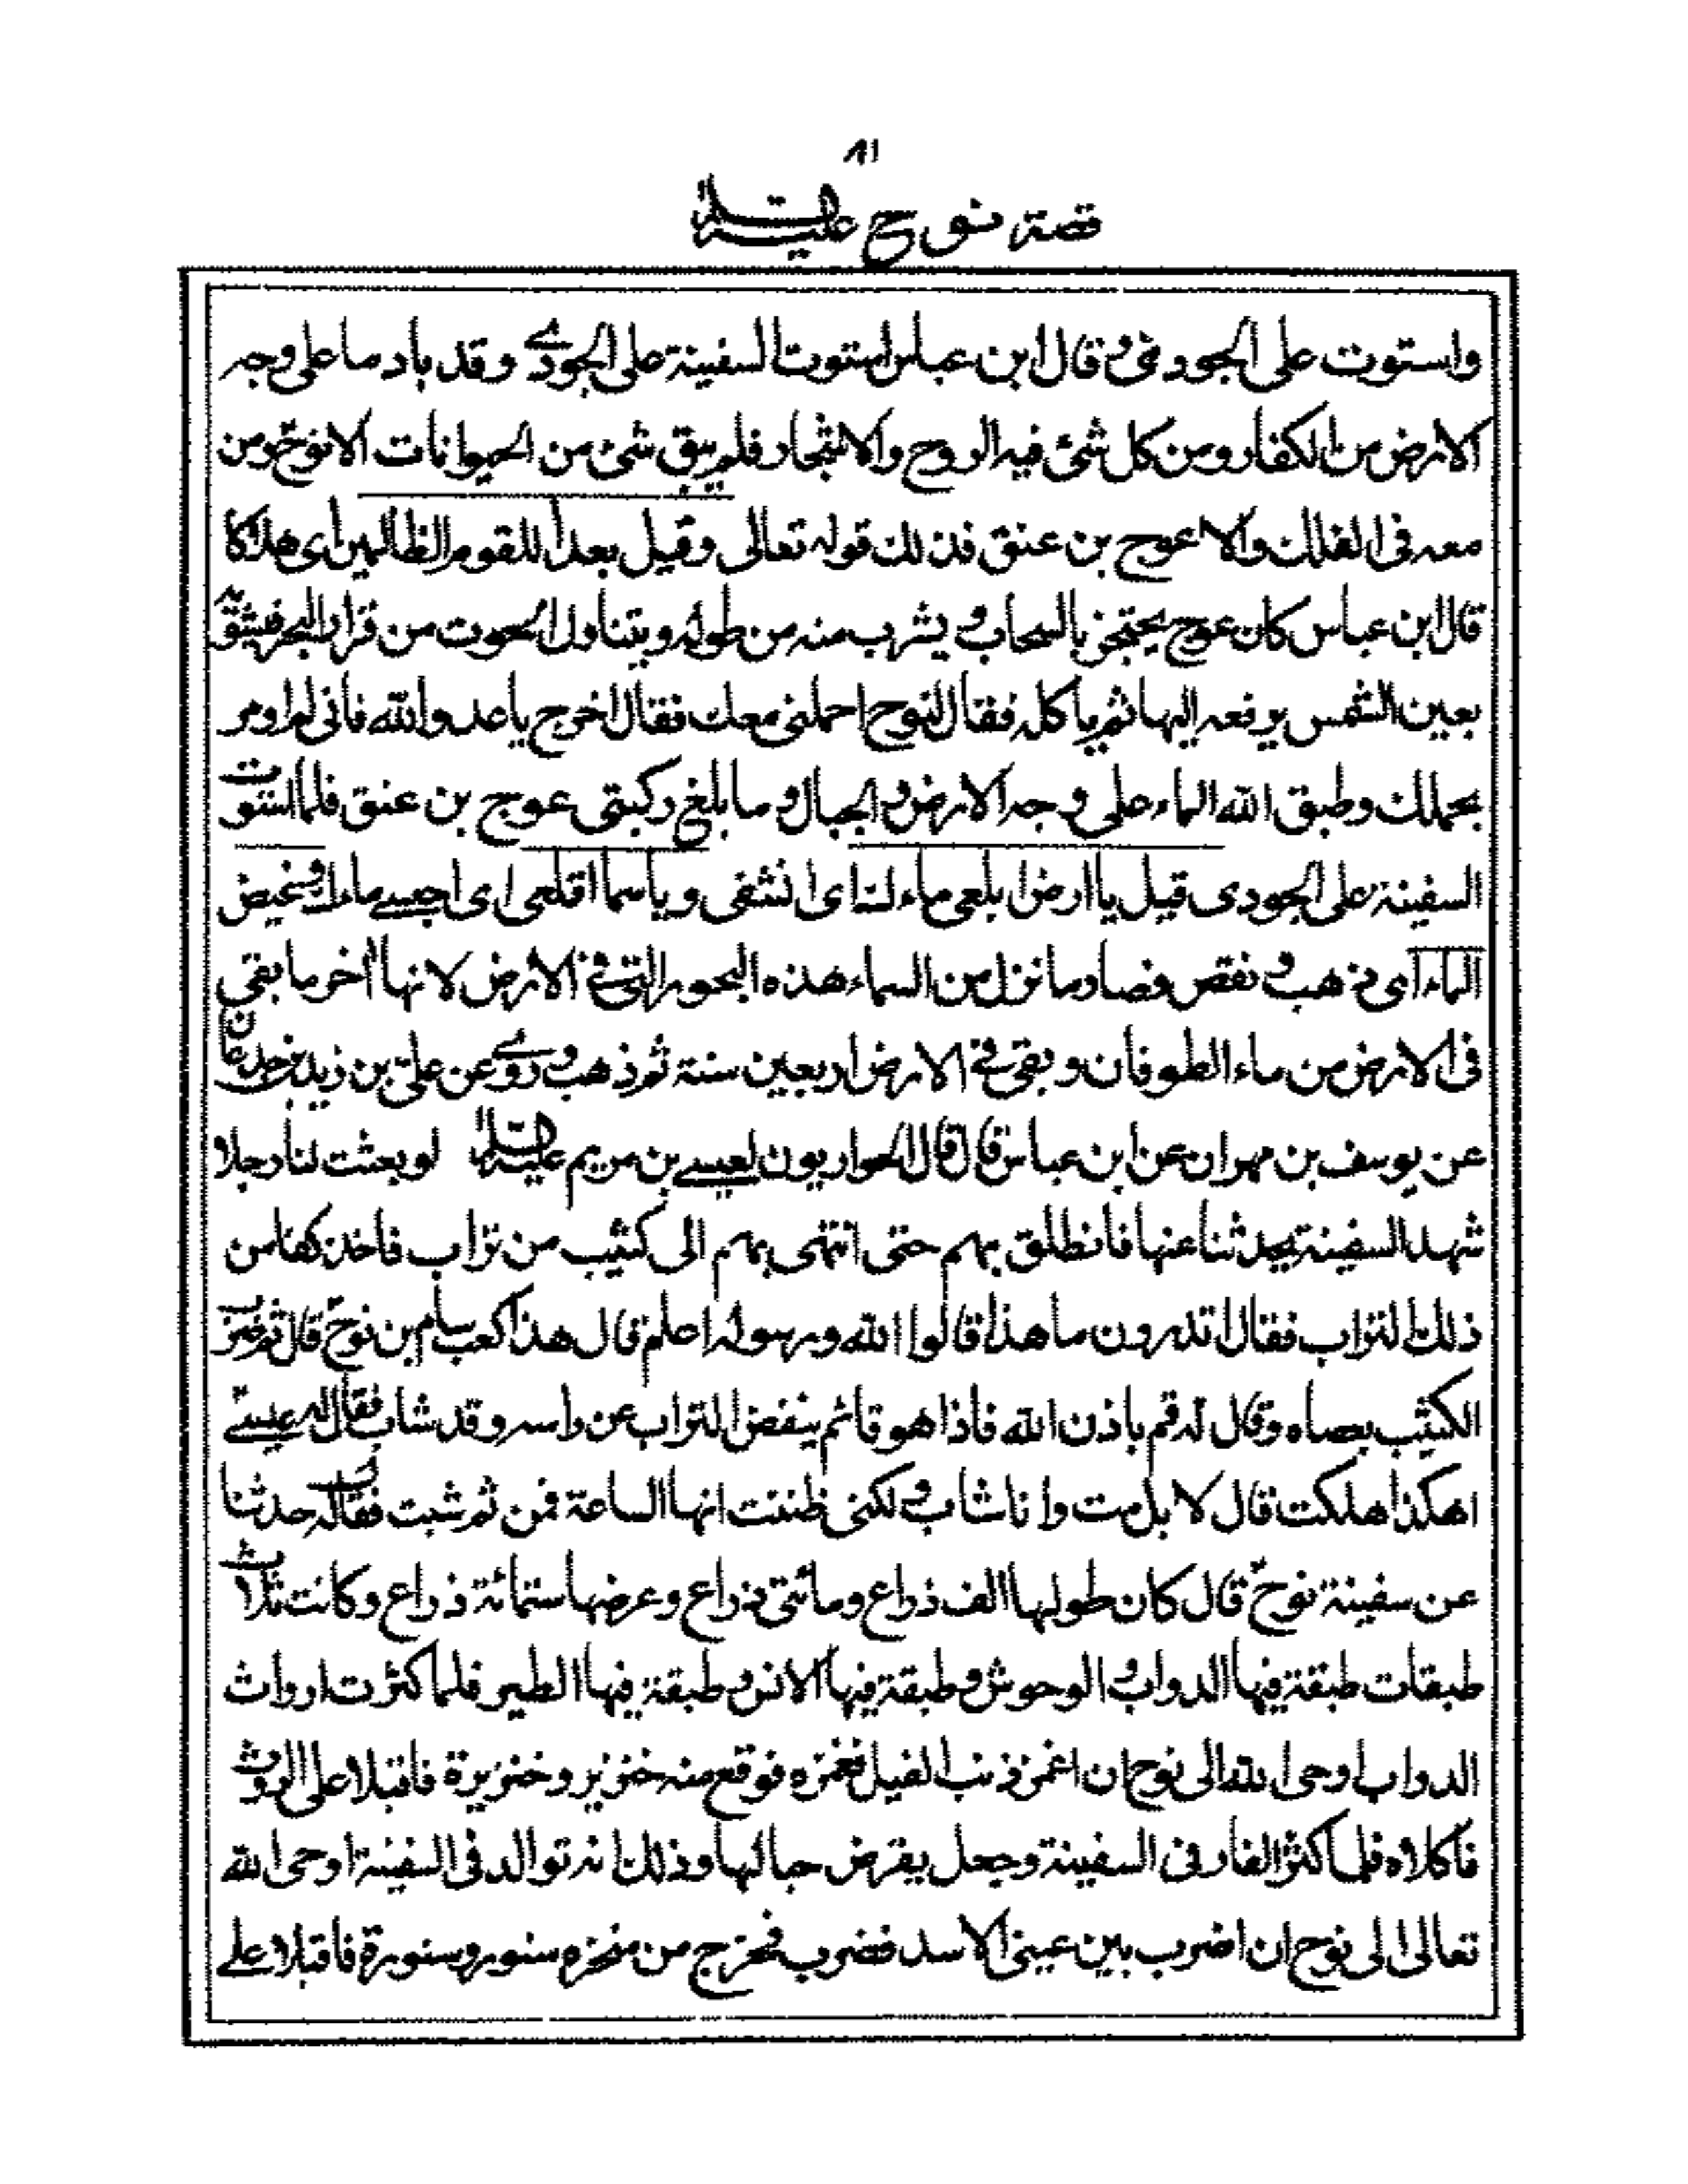 ٨١
قصة نوح عليه السلام
واستوت على الجودى و قال ابن عباس استوت السفينة على الجودى وقد باد ما على وجه
الارض من الكفار ومن كل شئ فيه الروح والاشجار فلم يبق شئ من الحيوانات الا نوح ومن
معه فى الفلك والا عوج بن عنق فذلك قوله تعالى وقيل بعدا للقوم الظالمين اى هلاكا
قال ابن عباس كان عوج يحتجز بالسحاب و يشرب منه من طوله ويتناول الحوت من قرار البحر فيشقه
بعين الشمس يرفعه اليها ثم ياكله فقال لنوح احملنى معك فقال اخرج يا عدو الله فانى لم اومر
بحملك وطبق الله الماء على وجه الارض و الجبال و ما بلغ ركبتى عوج بن عنق فلما استوت
السفينة على الجودى قيل يا ارض ابلعى ماءك اى انشفى ويا سما اقلعى اى احبسى ماءك وغيض
الماء اى ذهب و نقص فصار ما نزل من السماء هذه البحور التى فى الارض لانها اخر ما بقى
فى الارض من ماء الطوفان و بقى فى الارض اربعين سنة ثم ذهب و روى عن على بن زيد بن جدعان
عن يوسف بن مهران عن ابن عباس قال قال الحواريون لعيسى بن مريم عليه السلام لو بعثت لنا رجلا
شهد السفينة يحدثنا عنها فانطلق بهم حتى انتهى بهم الى كثيب من تراب فاخذ كفا من
ذلك التراب فقال اتدرون ما هذا قالوا الله ورسوله اعلم قال هذا كعب سام بن نوح قال ثم ضرب
الكثيب بعصاه وقال له قم باذن الله فاذا هو قائم ينفض التراب عن راسه وقد شاب فقال له عيسى
اهكذا هلكت قال لا بل مت وانا شاب و لكنى ظننت انها الساعة فمن ثم شبت فقال له حدثنا
عن سفينة نوح قال كان طولها الف ذراع ومائتى ذراع وعرضها ستمائة ذراع وكانت ثلاث
طبقات طبقة فيها الدواب و الوحوش و طبقة فيها الانس و طبقة فيها الطير فلما كثرت ارواث
الدواب اوحى الله الى نوح ان اغمز ذنب الفيل فغمزه فوقع منه خنزير وخنزيرة فاقبلا على الروث
فاكلاه فلما كثر الفار فى السفينة وجعل يقرض حبالها وذلك انه توالد فى السفينة اوحى الله
تعالى الى نوح ان اضرب بين عينى الاسد فضرب فخرج من منخره سنور وسنورة فاقبلا على